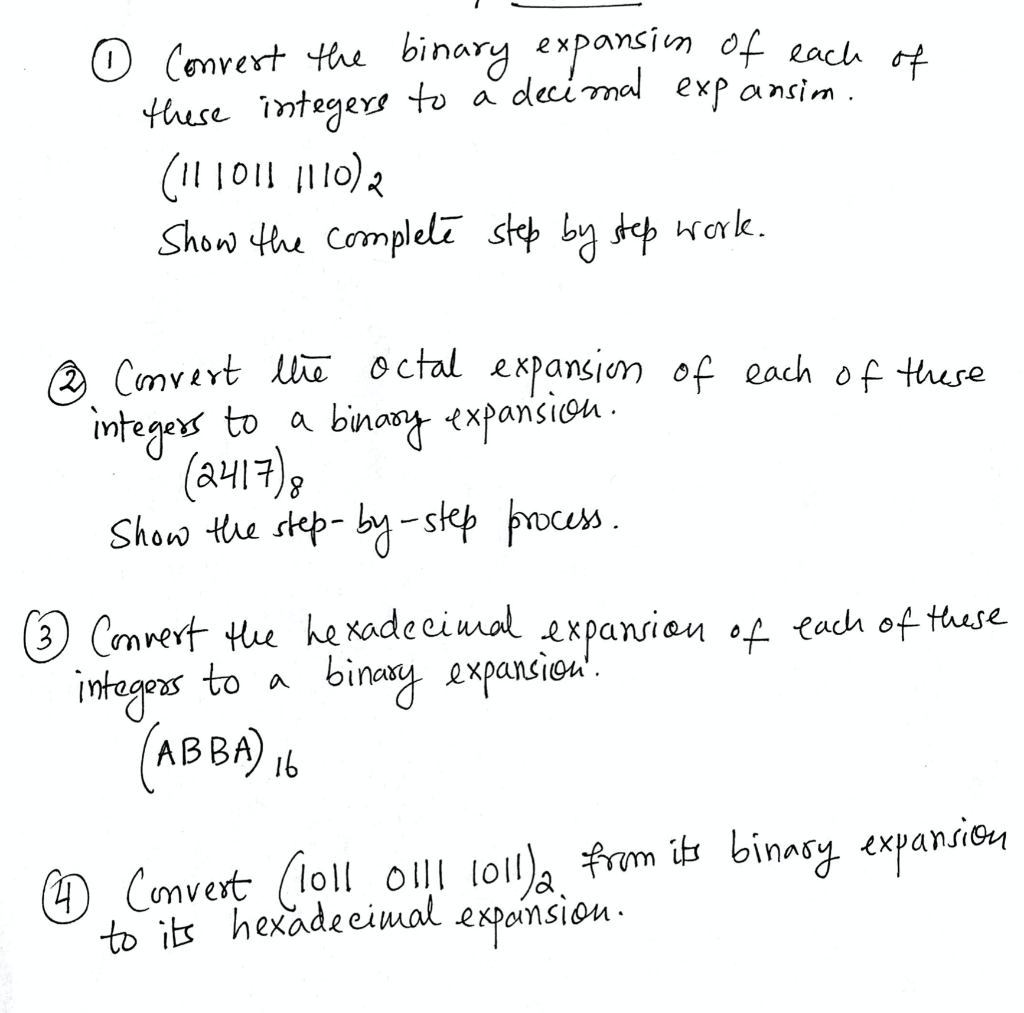 ① Convert the binary expansion of each of
these integers to a decimal expansion.
(11 1011 1110)2
Show the complete step by step work.
② Convert the octal expansion of each of these
integers to a binary expansion.
(2417)8
Show the step-by-step process.
③ Convert the hexadecimal expansion of each of these
integers to a binary expansion.
(ABBA)16
④ Convert (1011 0111 1011)2 from its binary expansion
to its hexadecimal expansion.